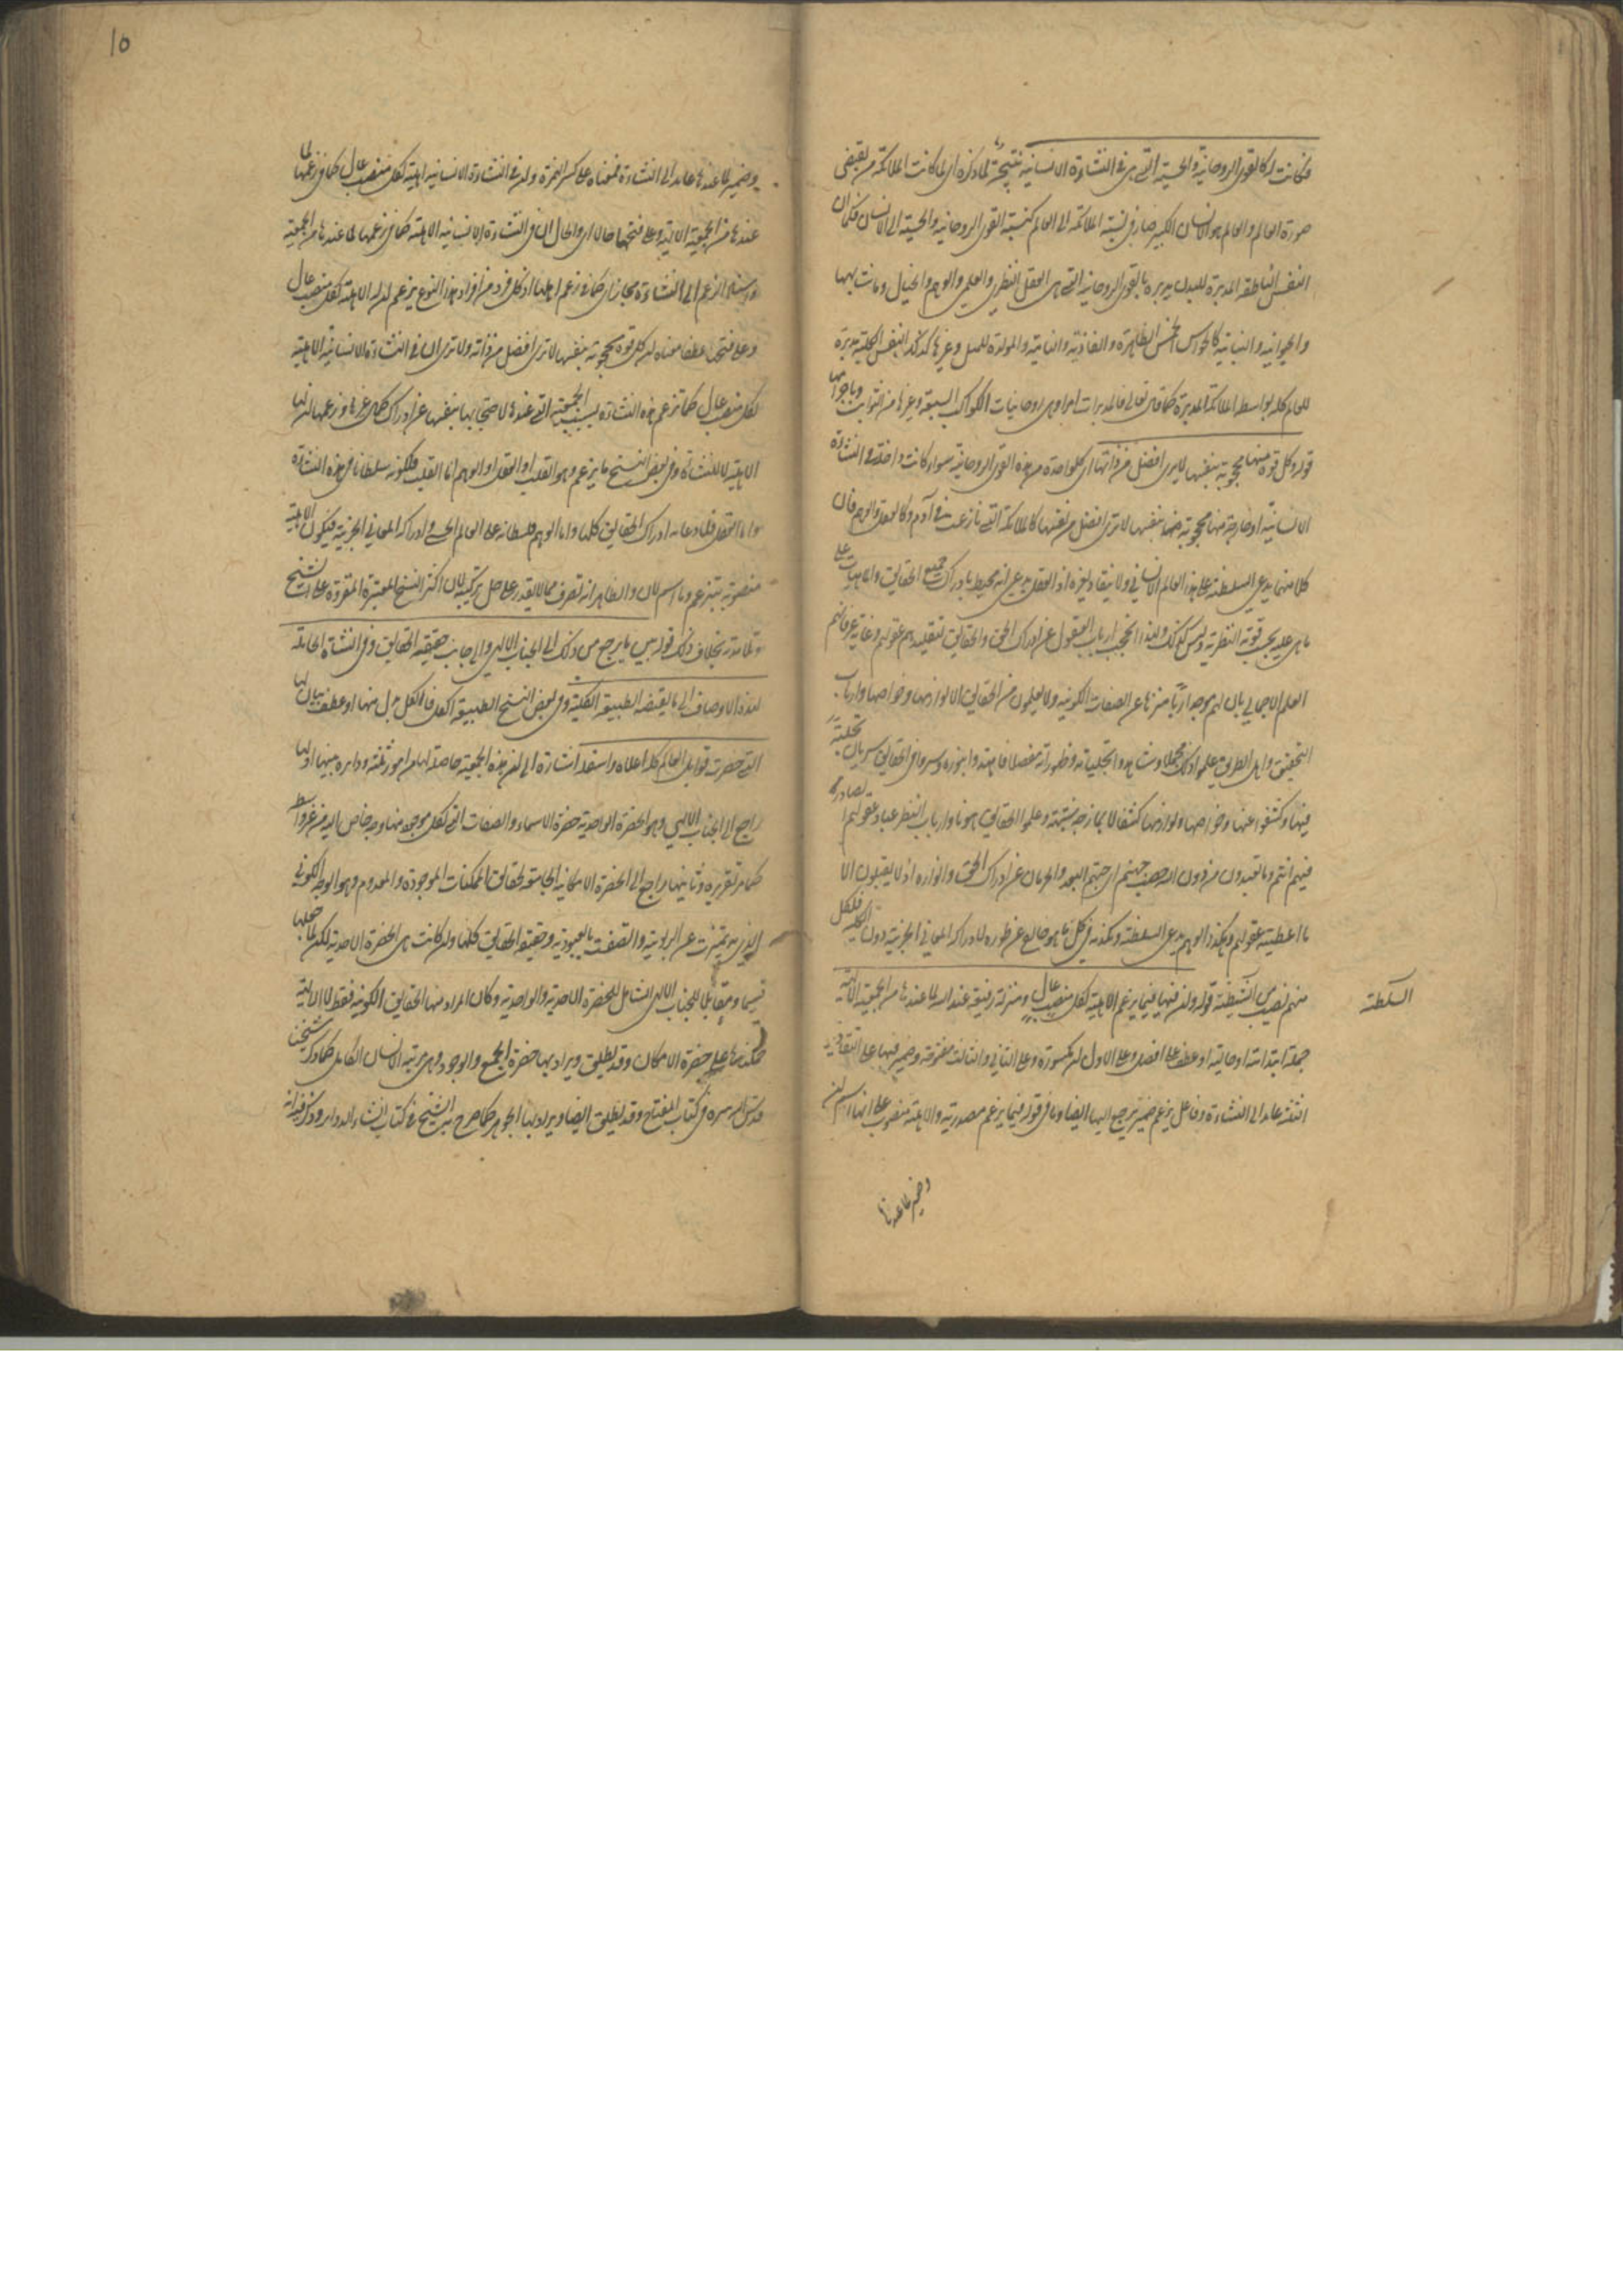 فكانت له كالقوى الروحانية والحسية التي هي في النشاءة الانسانية نتيجة لما ذكره اى لما كانت الملائكة من بعض قوى
صورة العالم والعالم هو الانسان الكبير صار نسبة الملائكة الى العالم كنسبة القوى الروحانية والحسية الى الانسان فكما ان
النفس الناطقة المدبرة للبدن يدبره بالقوى الروحانية التي هي العقل النظري والعملي والوهم والخيال وما شابهها
والحيوانية والنباتية كالحواس الخمس الظاهرة والغاذية والنامية والمولدة للمثل وغيرها كذلك النفس الكلية مدبرة
للعالم كله بواسطة الملائكة المدبرة كما قال تعالى فالمدبرات امرا وهي روحانيات الكواكب السبعة وغيرها من الثوابت
قوله وكل قوة منها محجوبة بنفسها لا يرى افضل من ذاتها اى كل واحدة من هذه القوى الروحانية سواء كانت داخلة في النشاءة
الانسانية او خارجة منها محجوبة بنفسها لا ترى افضل من نفسها كالملائكة التي نازعت في آدم وكالعقل والوهم فان
كلا منهما يدعى السلطنة على هذا العالم الانساني ولا ينقاد لغيره اذ العقل يدعى انه محيط بادراك جميع الحقايق والماهيات على
ما هي عليه بحسب قوته النظرية وليس كذلك ولهذا انحجب ارباب العقول عن ادراك الحق والحقايق لتقليدهم عقولهم وغاية عرفانهم
العلم الاجمالي بان لهم موجدا ربا منزها عن الصفات الكونية ولا يعلمون من الحقايق الا لوازمها وخواصها وارباب
التحقيق واهل الطريق علموا ذلك مجملا وشاهدوا تجلياته وظهوراته مفصلا فاهتدوا بنوره وسروا في الحقايق سريان تجليه
فيها وكشفوا عنها وخواصها ولوازمها كشفا لا يمازجه شبهة وعلموا الحقايق وارباب النظر عباد عقولهم
فيهم انكم وما تعبدون من دون الله حصب جهنم اى جهنم البعد والحرمان عن ادراك الحق وانواره اذ لا يقبلون الا
ما اعطيته عقولهم وهكذا الوهم يدعى السلطنة ويكذبه في كل ما هو خارج عن طوره لادراكه المعاني الجزئية دون الكلية فلكل
منهم نصيب من الشيطنة قوله وان فيها فيما يزعم الاهلية لكل منصب عال ومنزلة رفيعة عند الله لما عندها من الجمعية الالهية
جملة ابتدائية او حالية او عطف على افضل وعلى الاول ان مكسورة وعلى الثاني والثالث مفتوحة وضمير فيها على التقادير
الثلثة عايد الى النشاءة وفاعل يزعم ضمير يرجع اليها ايضا وما في قوله فيما يزعم مصدرية والاهلية منصوب على انها اسم ان
السلطنة
وضمير لما عندها
10
وضمير لما عندها عايد الى النشاءة فمعناه على كسر الهمزة وان في النشاءة الانسانية اهلية لكل منصب عال كما في زعمها لما
عندها من الجمعية الالهية وعلى فتحها حالا اى والحال ان في النشاءة الانسانية الاهلية كما في زعمها لما عندها من الجمعية
واسناد الزعم الى النشاءة مجاز اى كما في زعم اهلها اذ كل فرد من افراد هذا النوع يزعم ان له الاهلية لكل منصب عال
وعلى فتحها عطفا معناه ان كل قوة محجوبة بنفسها لا ترى افضل من ذاته ولا ترى ان في النشاءة الانسانية الاهلية
لكل منصب عال كما تزعم هذه النشاءة بسبب الجمعية التي عندها لاحتجابها بنفسها عن ادراك كمال غيرها وزعمها ان لها
الاهلية لا للنشاءة وفي بعض النسخ ما يزعم وهو القلب او العقل او الوهم اما القلب فلكونه سلطانا في هذه النشاءة
واما العقل فلادعائه ادراك الحقايق كلها واما الوهم فلسلطانه على العالم الحسي وادراكه المعاني الجزئية فيكون الاهلية
منصوبة بتزعم وما اسم لان والظاهر انه تصرف ممن لا يقدر على حل تركيبه لان اكثر النسخ المعتبرة المقروءة على الشيخ
وتلامذته بخلاف ذلك قوله بين ما يرجع من ذلك الى الجناب الالهي والى جانب حقيقة الحقايق وفي النشاة الحاملة
لهذه الاوصاف الى ما يقتضيه الطبيعة الكلية وفي بعض النسخ الطبيعة الكل فالكل بدل منها او عطف بيان لها
التي حصرت قوابل العالم كله اعلاه واسفله اشارة الى ان هذه الجمعية حاصلة لها من امور ثلثة دايرة بينها اولها
راجع الى الجناب الالهي وهو الحضرة الواحدية حضرة الاسماء والصفات التي لكل موجود منها وجه خاص اليه من غير واسطة
كما مر تقريره وثانيها راجع الى الحضرة الامكانية الجامعة لحقايق الممكنات الموجودة والمعدوم وهو الوجه الكوني
الذي به تميزت عن الربوبية واتصفت بالعبودية وحقيقة الحقايق كلها وان كانت هي الحضرة الاحدية لكن لما جعلها
قسيما ومقابلا للجناب الالهي الشامل للحضرة الاحدية والواحدية وكان المراد منها الحقايق الكونية فقط لا الالهية
حملناها على حضرة الامكان وقد يطلق ويراد بها حضرة الجمع والوجود وهي مرتبة الانسان الكامل كما ذكره شيخنا
قدس الله سره في كتاب المفتاح وقد يطلق ايضا ويراد بها الجوهر كما صرح به الشيخ في كتاب انشاء الدواير وذكر فيه انه